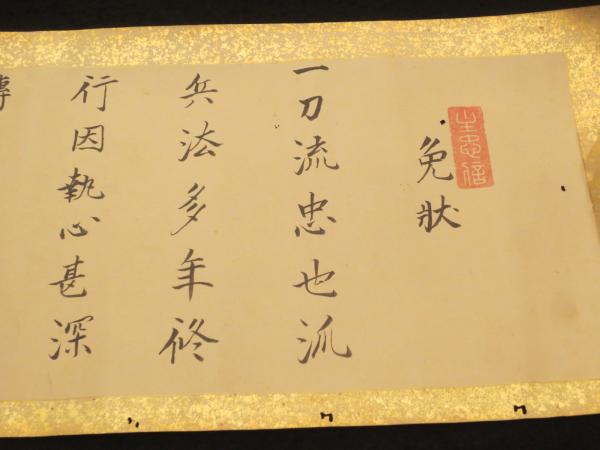 免狀
一刀流忠也派
兵法多年修
行因執心甚深